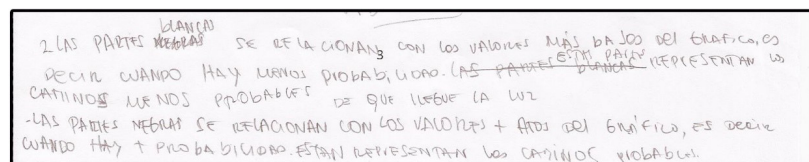 2 LAS PARTES BLANCAS SE RELACIONAN CON LOS VALORES MÁS BAJOS DEL GRÁFICO, ES
DECIR CUANDO HAY MENOS PROBABILIDAD. ESTA PARTE REPRESENTAN LOS
CAMINOS MENOS PROBABLES DE QUE LLEGUE LA LUZ
-LAS PARTES NEGRAS SE RELACIONAN CON LOS VALORES + ATOS DEL GRÁFICO, ES DECIR
CUANDO HAY + PROBABILIDAD. ESTAN REPRESENTAN LOS CAMINOS PROBABLES.